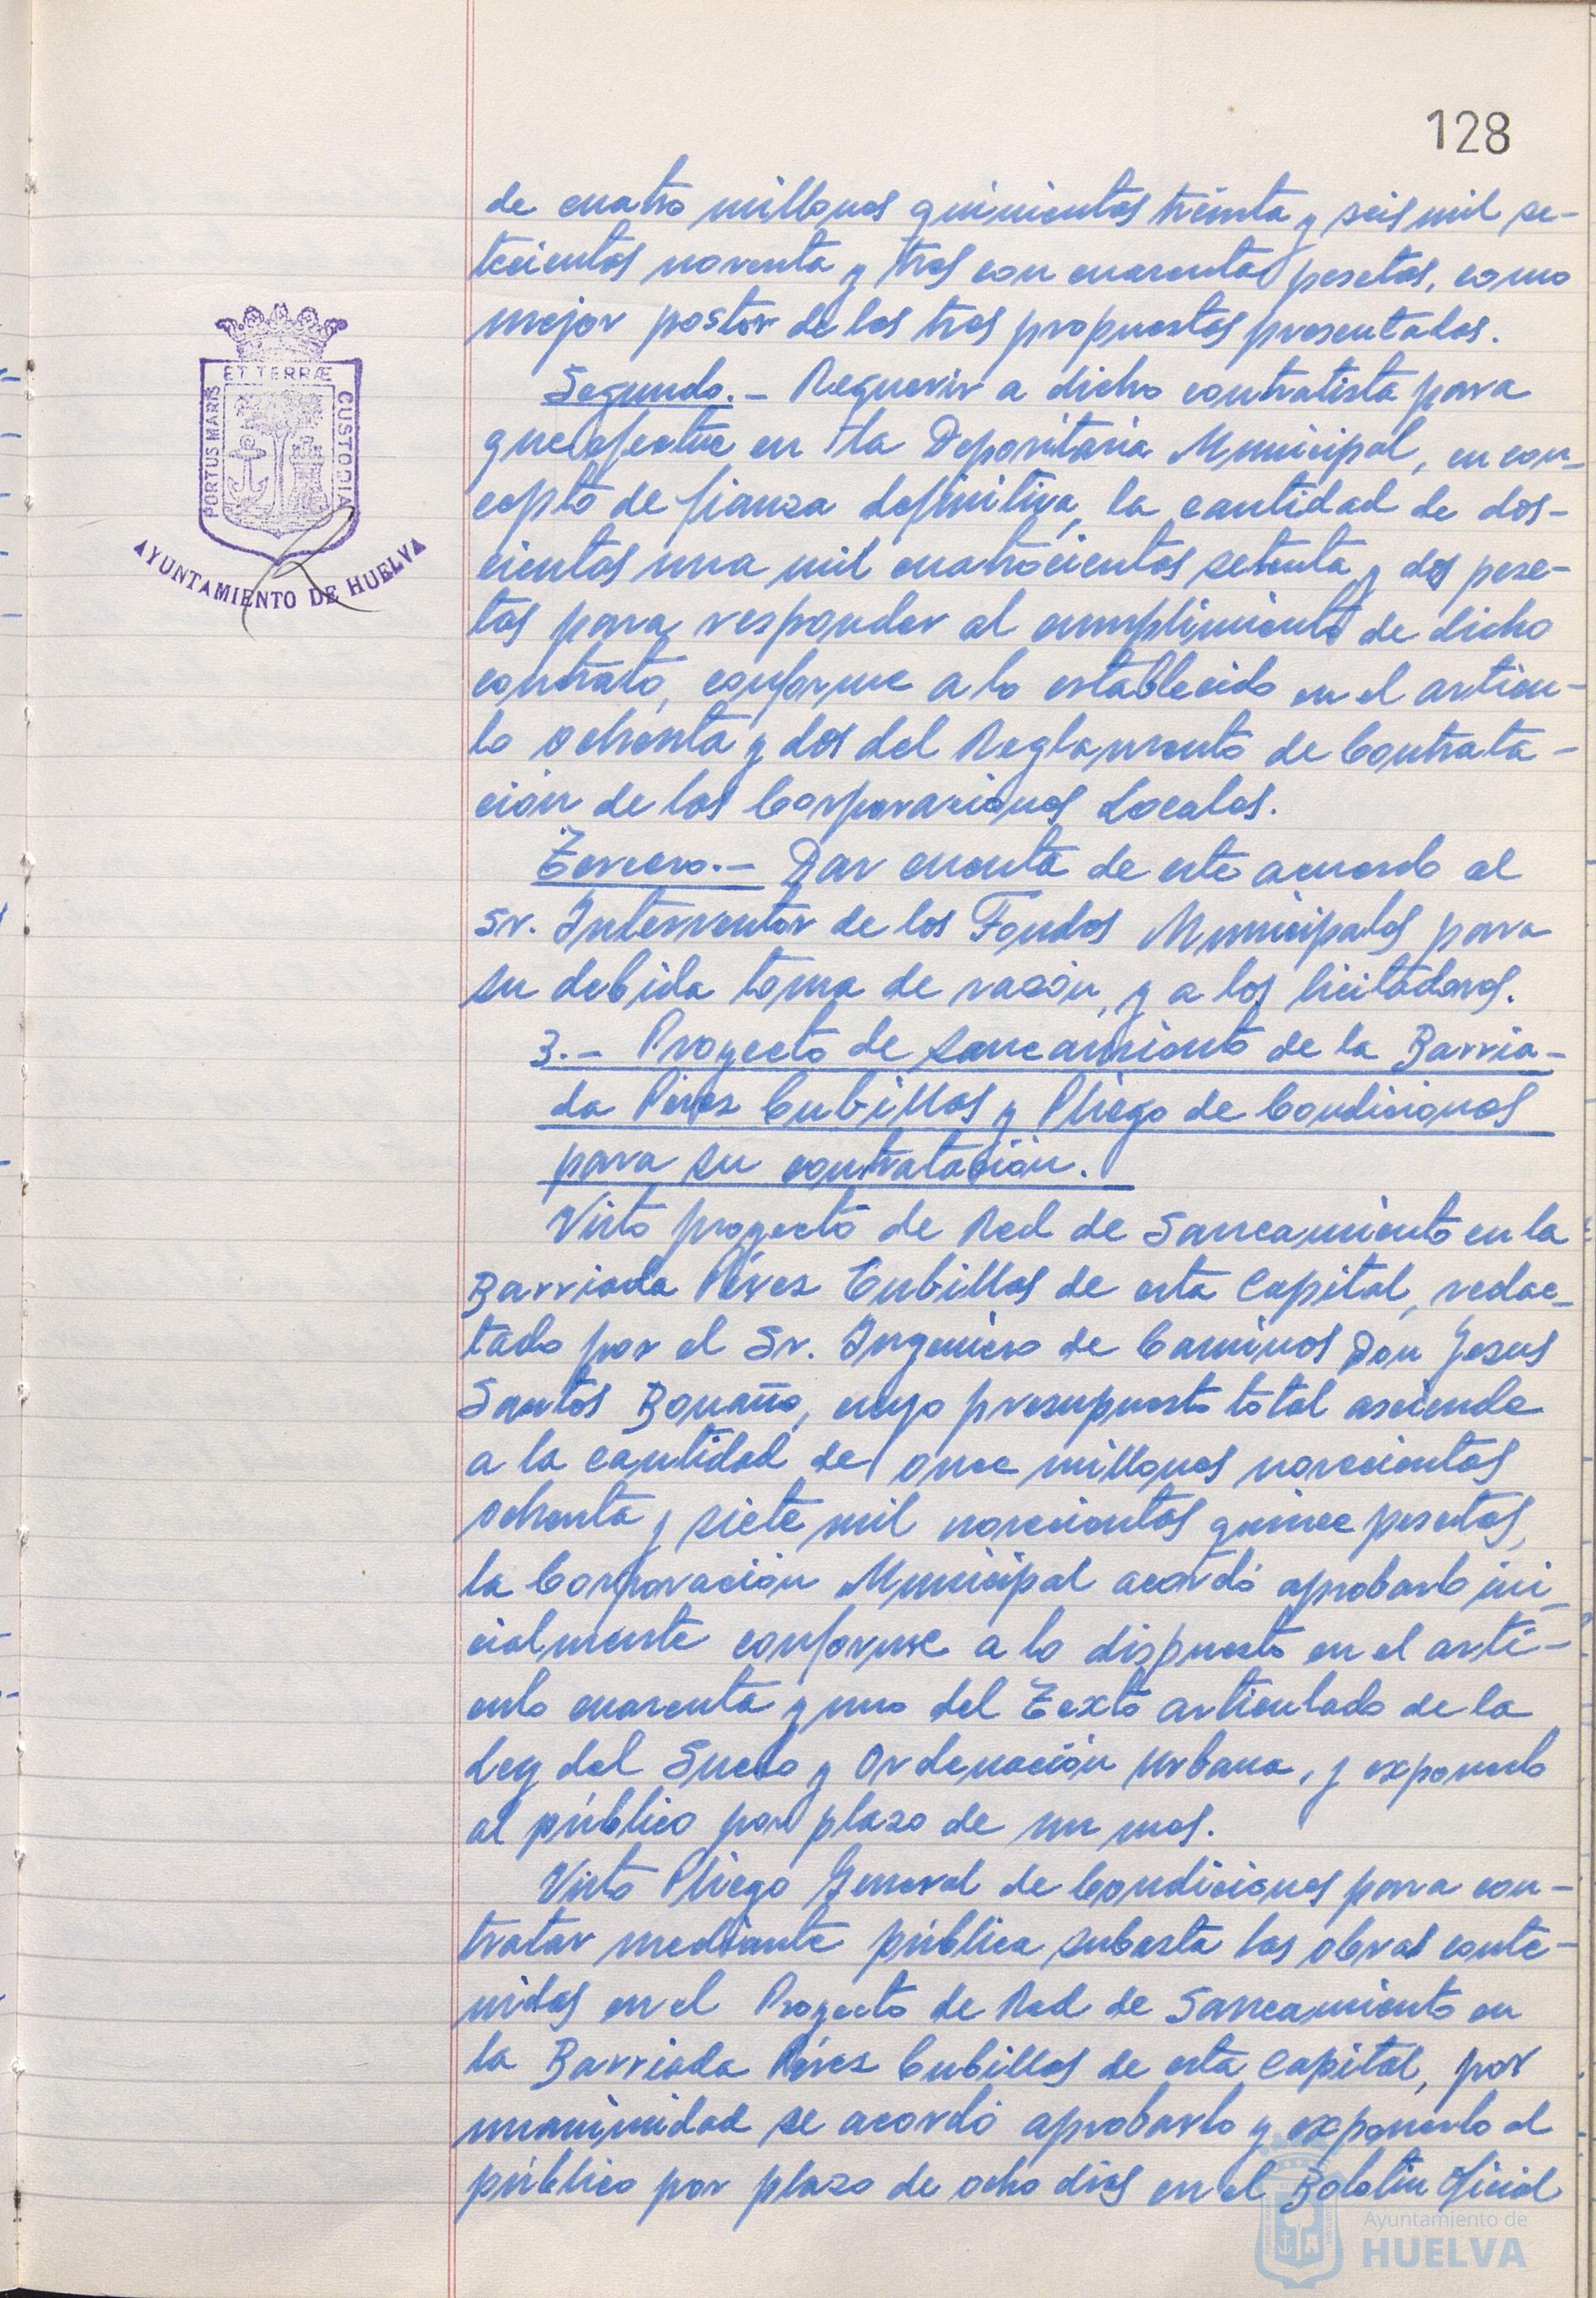 128
de cuatro millones quinientos treinta y seis mil se-
tecientos noventa y tres con cuarenta pesetas, como
mejor postor de las tres propuestas presentadas.
Segundo.- Requerir a dicho contratista para
que efectue en la Depositaria Municipal, en con-
cepto de fianza definitiva, la cantidad de dos-
cientas una mil cuatrocientas setenta y dos pese-
tas para responder al cumplimiento de dicho
contrato, conforme a lo establecido en el articu-
lo ochenta y dos del Reglamento de Contrata-
ción de las Corporaciones Locales.
Tercero.- Dar cuenta de este acuerdo al
Sr. Interventor de los Fondos Municipales para
su debida toma de razón, y a los licitadores.
3.- Proyecto de saneamiento de la Barria-
da Pérez Cubillas y Pliego de Condiciones
para su contratación.
Visto proyecto de Red de Saneamiento en la
Barriada Pérez Cubillas de esta Capital, redac-
tado por el Sr. Ingeniero de Caminos Don Jesus
Santos Bonaño, cuyo presupuesto total asciende
a la cantidad de once millones novecientas
ochenta y siete mil novecientas quince pesetas,
la Corporación Municipal acordó aprobarlo ini-
cialmente conforme a lo dispuesto en el artí-
culo cuarenta y uno del Texto articulado de la
Ley del Suelo y Ordenación Urbana, y exponerlo
al público por plazo de un mes.
Visto Pliego General de Condiciones para con-
tratar mediante pública subasta las obras conte-
nidas en el Proyecto de Red de Saneamiento en
la Barriada Pérez Cubillas de esta Capital, por
unanimidad se acordó aprobarlo y exponerlo al
público por plazo de ocho dias en el Boletin Oficial
ET TERRÆ
PORTUS MARIS
CUSTODIA
AYUNTAMIENTO DE HUELVA
Ayuntamiento de
HUELVA